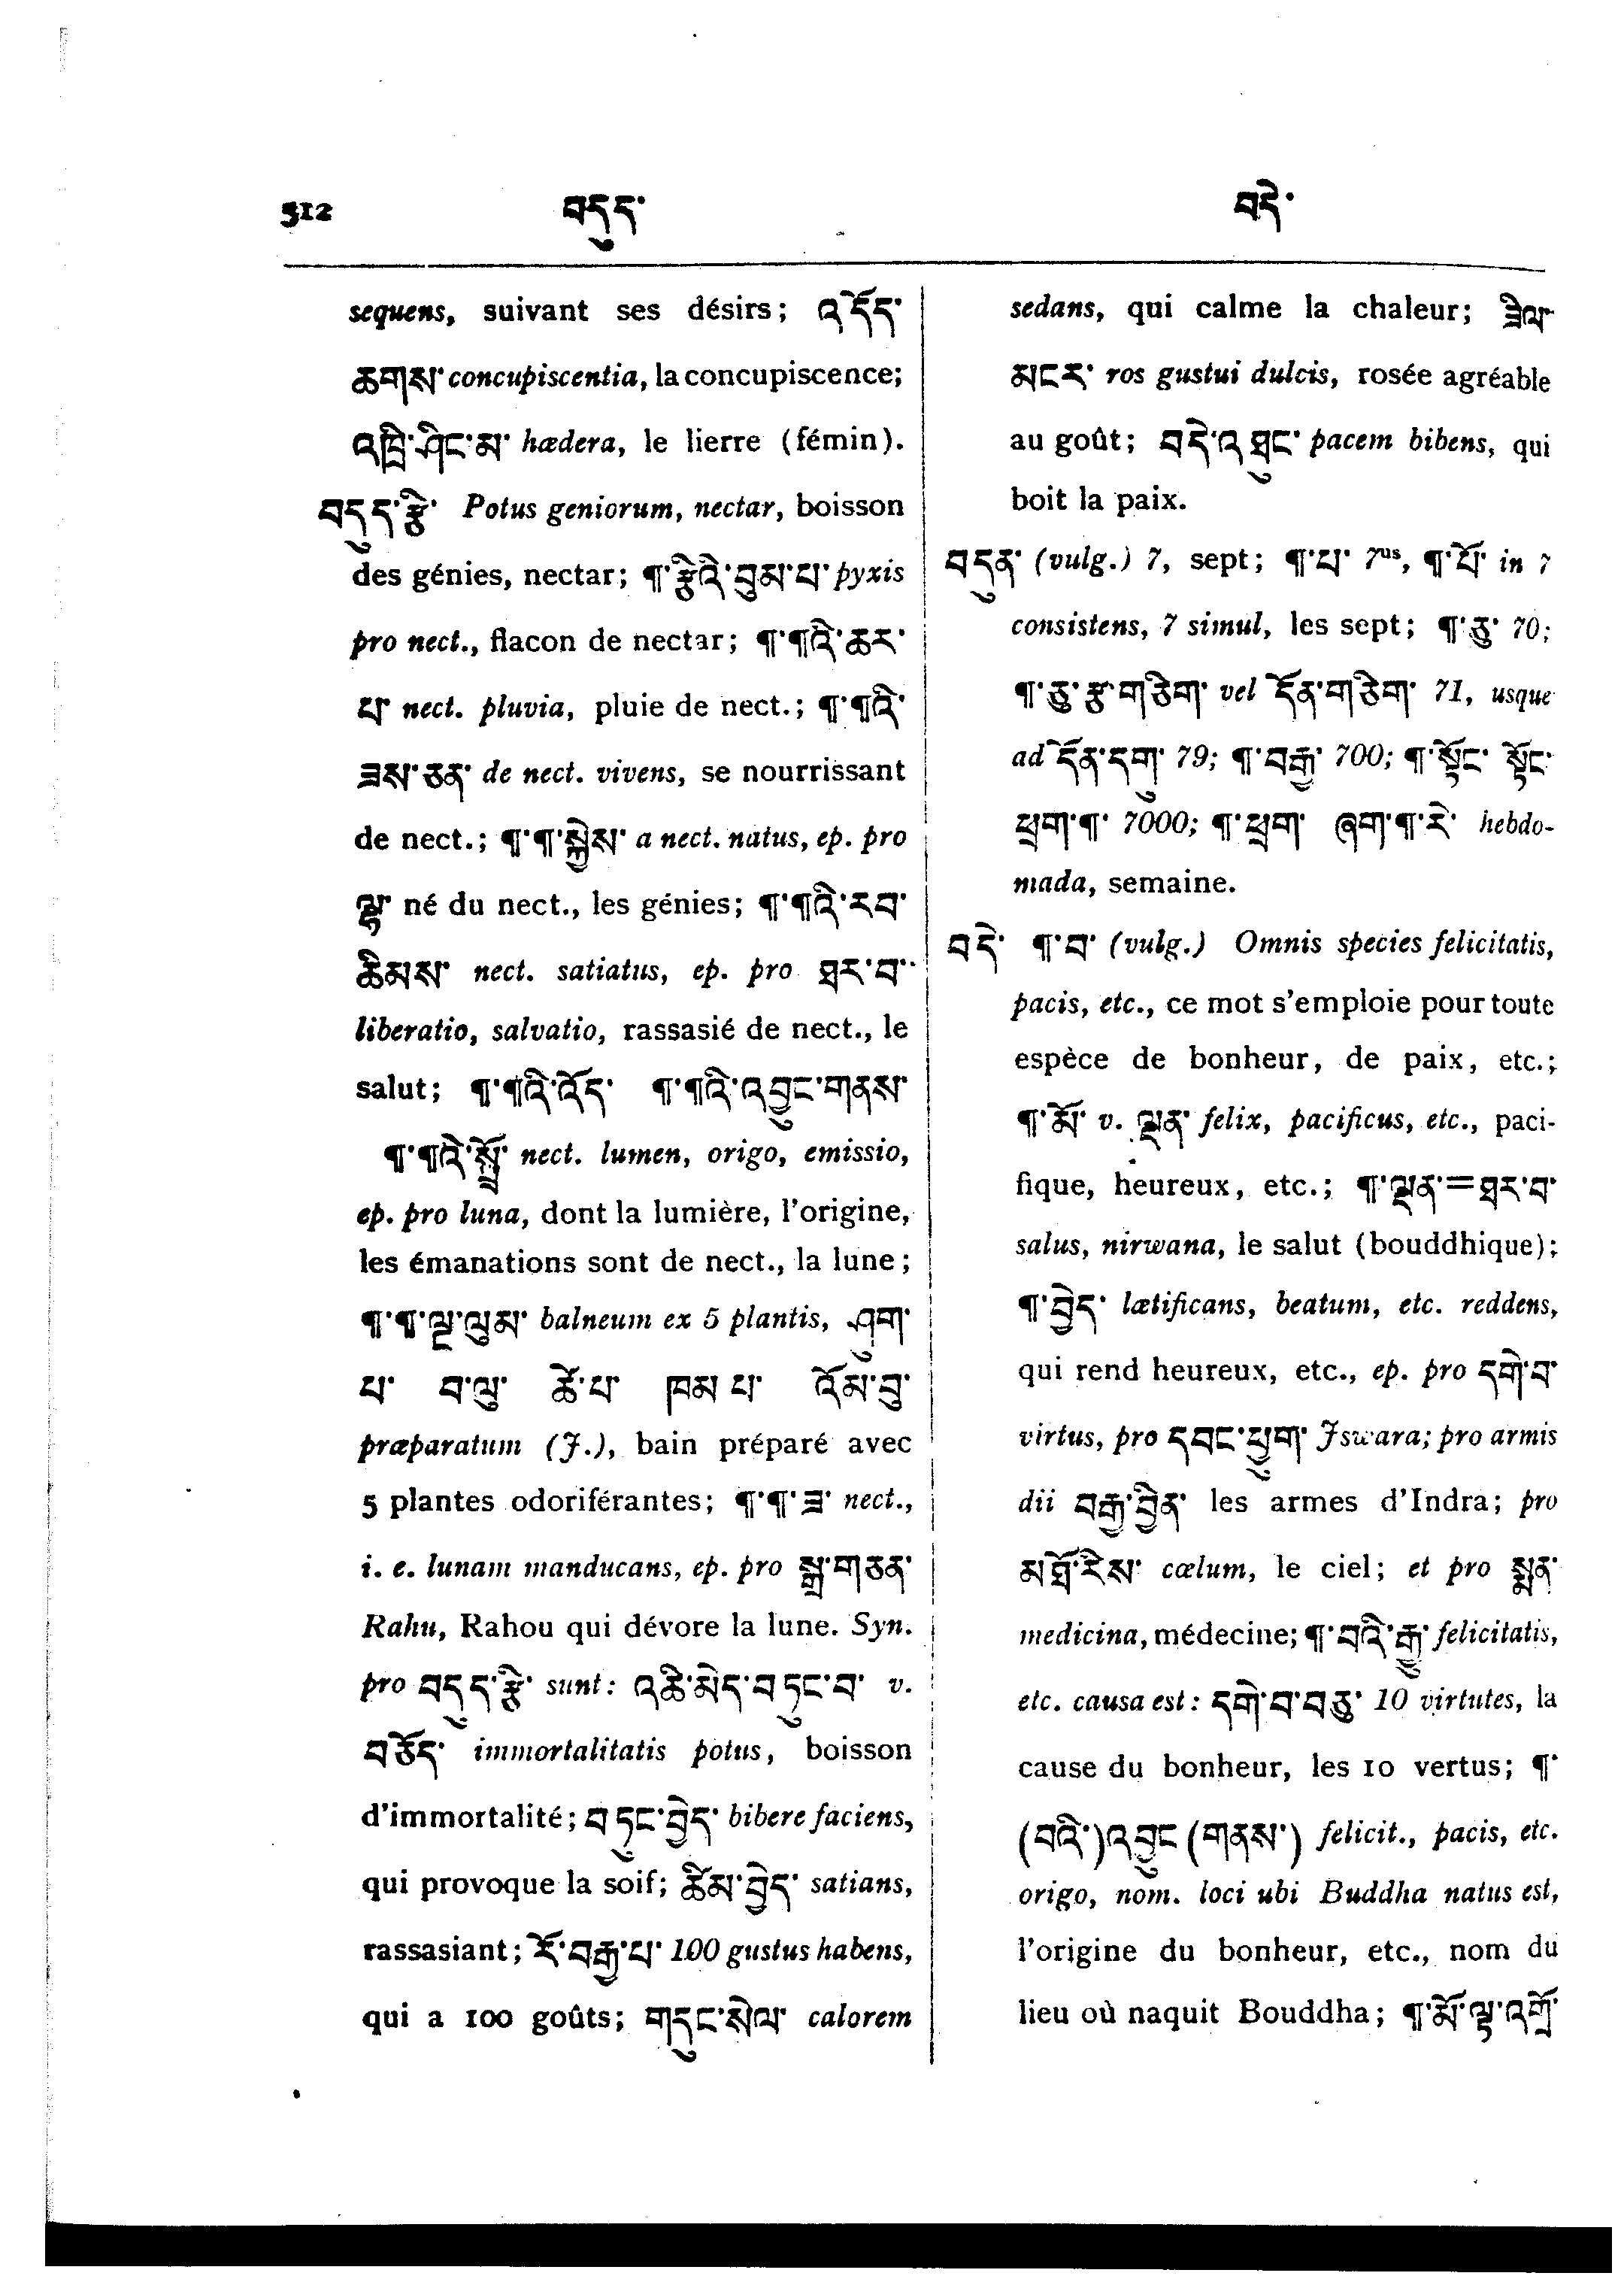 512 བདུད་ བདེ་
sequens, suivant ses désirs; འདོད་
ཆགས་ concupiscentia, la concupiscence;
འཁྲི་ཤིང་མ་ hædera, le lierre (fémin).
བདུད་རྩི་ Potus geniorum, nectar, boisson
des génies, nectar; ¶་རྩིའི་བུམ་པ་ pyxis
pro nect., flacon de nectar; ¶་¶འི་ཆར་
པ་ nect. pluvia, pluie de nect.; ¶་¶འི་
ཟས་ཅན་ de nect. vivens, se nourrissant
de nect.; ¶་¶་སྐྱེས་ a nect. natus, ep. pro
ལྷ་ né du nect., les génies; ¶་¶འི་རབ་
ཆིམས་ nect. satiatus, ep. pro ཐར་བ་
liberatio, salvatio, rassasié de nect., le
salut; ¶་¶འི་འོད་ ¶་¶འི་འབྱུང་གནས་
¶་¶འི་སྤྲོ་ nect. lumen, origo, emissio,
ep. pro luna, dont la lumière, l'origine,
les émanations sont de nect., la lune;
¶་¶་ལྔ་ལུམ་ balneum ex 5 plantis, ཤུག་
པ་ བ་ལུ་ ཚེ་པ་ ཁམ་པ་ འོམ་བུ་
præparatum (J.), bain préparé avec
5 plantes odoriférantes; ¶་¶་ཟ་ nect.,
i. e. lunam manducans, ep. pro སྒྲ་གཅན་
Rahu, Rahou qui dévore la lune. Syn.
pro བདུད་རྩི་ sunt: འཆི་མེད་བཏུང་བ་ v.
བཅོད་ immortalitatis potus, boisson
d'immortalité; བཏུང་བྱེད་ bibere faciens,
qui provoque la soif; ཚིམ་བྱེད་ satians,
rassasiant; རོ་བརྒྱ་པ་ 100 gustus habens,
qui a 100 goûts; གདུང་སེལ་ calorem
sedans, qui calme la chaleur; ཟིལ་
མངར་ ros gustui dulcis, rosée agréable
au goût; བདེ་འཐུང་ pacem bibens, qui
boit la paix.
བདུན་ (vulg.) 7, sept; ¶་པ་ 7us, ¶་པོ་ in 7
consistens, 7 simul, les sept; ¶་ཅུ་ 70;
¶་ཅུ་རྩ་གཅིག་ vel དོན་གཅིག་ 71, usque
ad དོན་དགུ་ 79; ¶་བརྒྱ་ 700; ¶་སྟོང་ སྟོང་
ཕྲག་¶་ 7000; ¶་ཕྲག་ ཞག་¶་རེ་ hebdo-
mada, semaine.
བདེ་ ¶་བ་ (vulg.) Omnis species felicitatis,
pacis, etc., ce mot s'emploie pour toute
espèce de bonheur, de paix, etc.;
¶་མོ་ v. ལྡན་ felix, pacificus, etc., paci-
fique, heureux, etc.; ¶་ལྡན་=ཐར་བ་
salus, nirwana, le salut (bouddhique);
¶་བྱེད་ lætificans, beatum, etc. reddens,
qui rend heureux, etc., ep. pro དགེ་བ་
virtus, pro དབང་ཕྱུག་ Jswara; pro armis
dii བརྒྱ་བྱིན་ les armes d'Indra; pro
མཐོ་རིས་ cœlum, le ciel; et pro སྨན་
medicina, médecine; ¶་བའི་རྒྱུ་ felicitatis,
etc. causa est: དགེ་བ་བཅུ་ 10 virtutes, la
cause du bonheur, les 10 vertus; ¶་
(བའི་)འབྱུང(གནས་) felicit., pacis, etc.
origo, nom. loci ubi Buddha natus est,
l'origine du bonheur, etc., nom du
lieu où naquit Bouddha; ¶་མོ་ལྟ་འགྲོ་